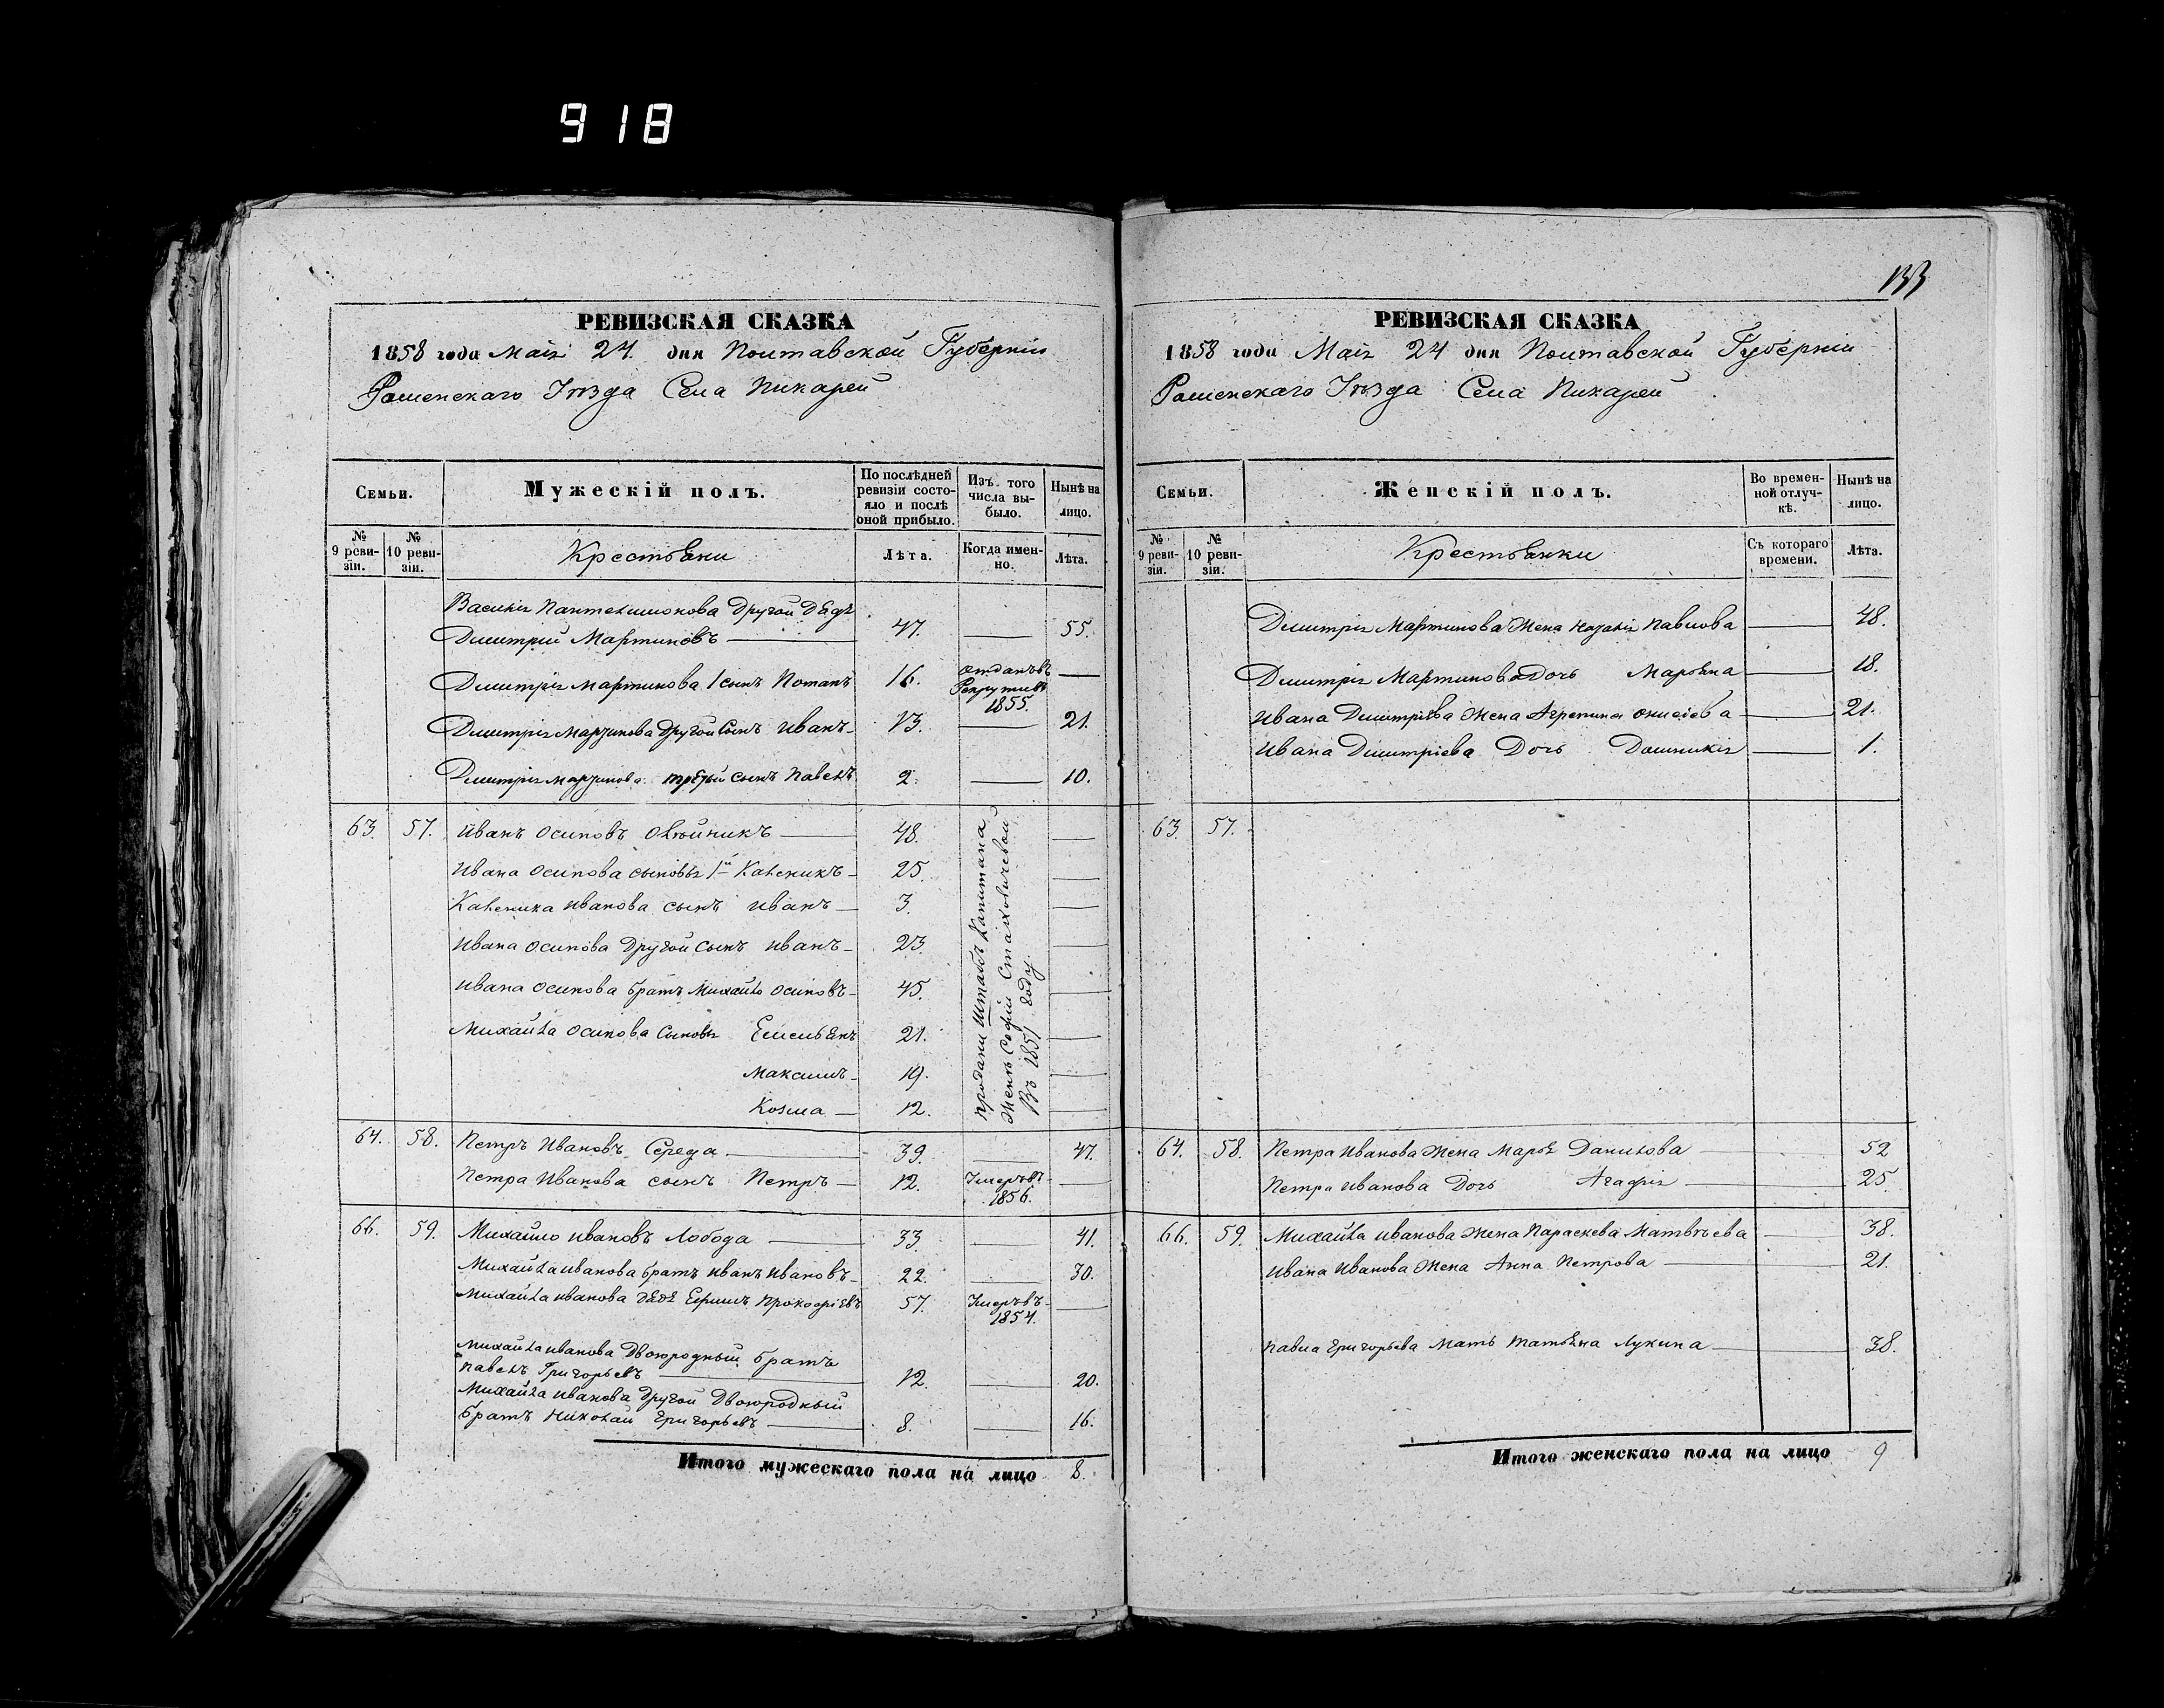 918
133
РЕВИЗСКАЯ СКАЗКА
1858 года Маія 24. дня Полтавской Губерніи
Роменскаго Уѣзда Села Пикарей
Семьи.
Мужескій полъ.
По послѣдней ревизіи состояло и послѣ оной прибыло.
Изъ того числа выбыло.
Нынѣ на лицо.
№ 9 ревизіи.
№ 10 ревизіи.
Крестьяни
Лѣта.
Когда именно.
Лѣта.
Василія Пантелимонова Другой Дядя
Димитрій Мартиновъ 47. 55.
Димитрія Мартинова 1 сынъ Потапъ 16. отданъ въ Рекруты въ 1855.
Димитрія Мартинова Другой Сынъ Иванъ 13. 21.
Димитрія Мартинова третій сынъ Павелъ 2. 10.
63. 57. Иванъ Осиповъ Олѣйникъ 48.
Ивана Осипова сыновья 1й Каленикъ 25.
Каленика Иванова сынъ Иванъ 3.
Ивана Осипова Другой Сынъ Иванъ 23.
Ивана Осипова братъ Михайло Осиповъ 45.
Михайла Осипова Сыновья Емельянъ 21.
Максимъ 19.
Козма 12.
проданы Штабсъ Капитана
Женѣ Софіи Стаховичевой
Въ 1851 году.
64. 58. Петръ Ивановъ Середа 39. 47.
Петра Иванова сынъ Петръ 12. Умеръ въ 1856.
66. 59. Михайло Ивановъ Лобода 33. 41.
Михайла Иванова братъ Иванъ Ивановъ 22. 30.
Михайла Иванова Дядя Ефимъ Прокофіевъ 57. Умеръ въ 1854.
Михайла Иванова Двоюродный братъ
Павелъ Григорьевъ 12. 20.
Михайла Иванова Другой Двоюродный
братъ Николай Григорьевъ 8. 16.
Итого мужескаго пола на лицо 8.
РЕВИЗСКАЯ СКАЗКА
1858 года Маія 24 дня Полтавской Губерніи
Роменскаго Уѣзда Села Пикарей
Семьи.
Женскій полъ.
Во временной отлучкѣ.
Нынѣ на лицо.
№ 9 ревизіи.
№ 10 ревизіи.
Крестьянки
Съ котораго времени.
Лѣта.
Димитрія Мартинова Жена Наталія Павлова 48.
Димитрія Мартинова Дочь Марьяна 18.
Ивана Димитріева Жена Агрепина 21.
Ивана Димитріева Дочь Домникія 1.
63. 57.
64. 58. Петра Иванова Жена Марья Данилова 52
Петра Иванова Дочь Агафія 25.
66. 59. Михайла Иванова Жена Параскева Матвѣева 38.
Ивана Иванова Жена Анна Петрова 21.
Павла Григорьева Мать Татьяна Лукина 38.
Итого женскаго пола на лицо 9